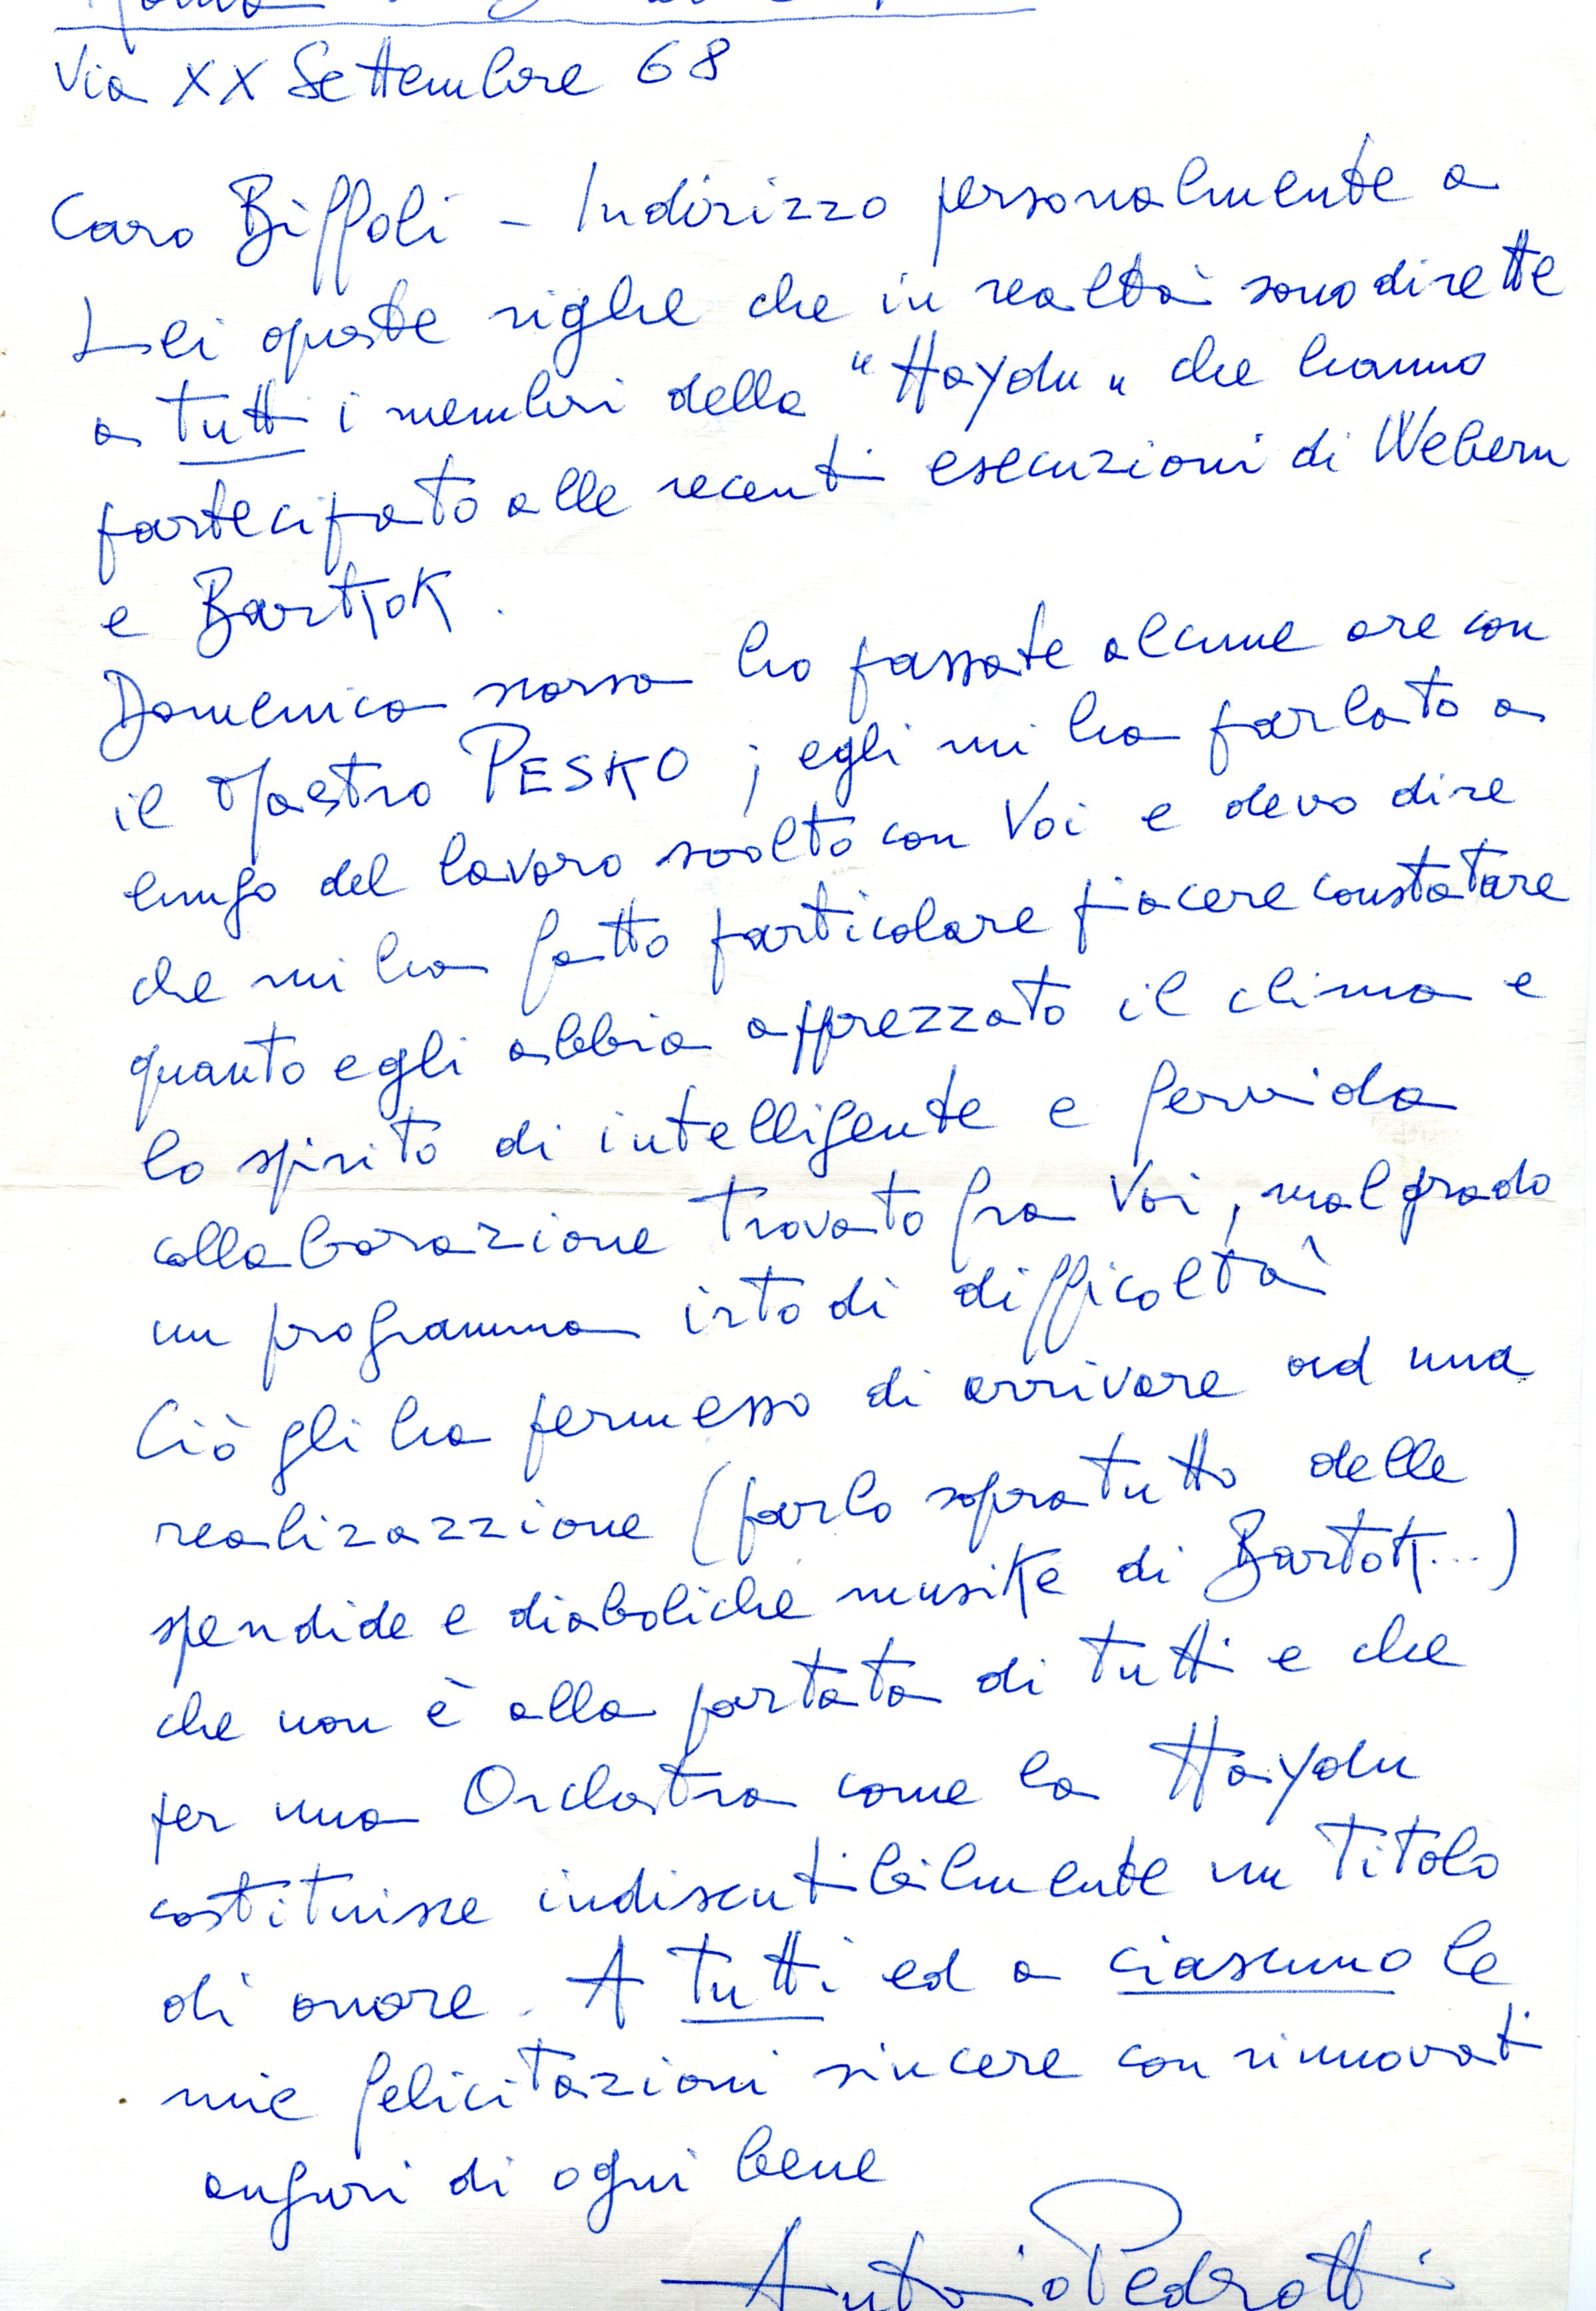 Roma
Via XX Settembre 68
Caro Biffoli - Indirizzo personalmente a
Lei queste righe che in realtà sono dirette
a tutti i membri della "Haydn" che hanno
partecipato alle recenti esecuzioni di Webern
e Bartok.
Domenica scorsa ho passate alcune ore con
il Maestro PESKO; egli mi ha parlato a
lungo del lavoro svolto con Voi e devo dire
che mi ha fatto particolare piacere constatare
quanto egli abbia apprezzato il clima e
lo spirito di intelligente e fervida
collaborazione trovato fra Voi, malgrado
un programma irto di difficoltà
Ciò gli ha permesso di arrivare ad una
realizazzione (parlo sopratutto delle
spendide e diaboliche musike di Bartok...)
che non è alla portata di tutti e che
per una Orchestra come la Haydn
costituisce indiscutibilmente un Titolo
di onore. A tutti ed a ciascuno le
mie felicitazioni sincere con rinnovati
auguri di ogni bene
Antonio Pedrotti